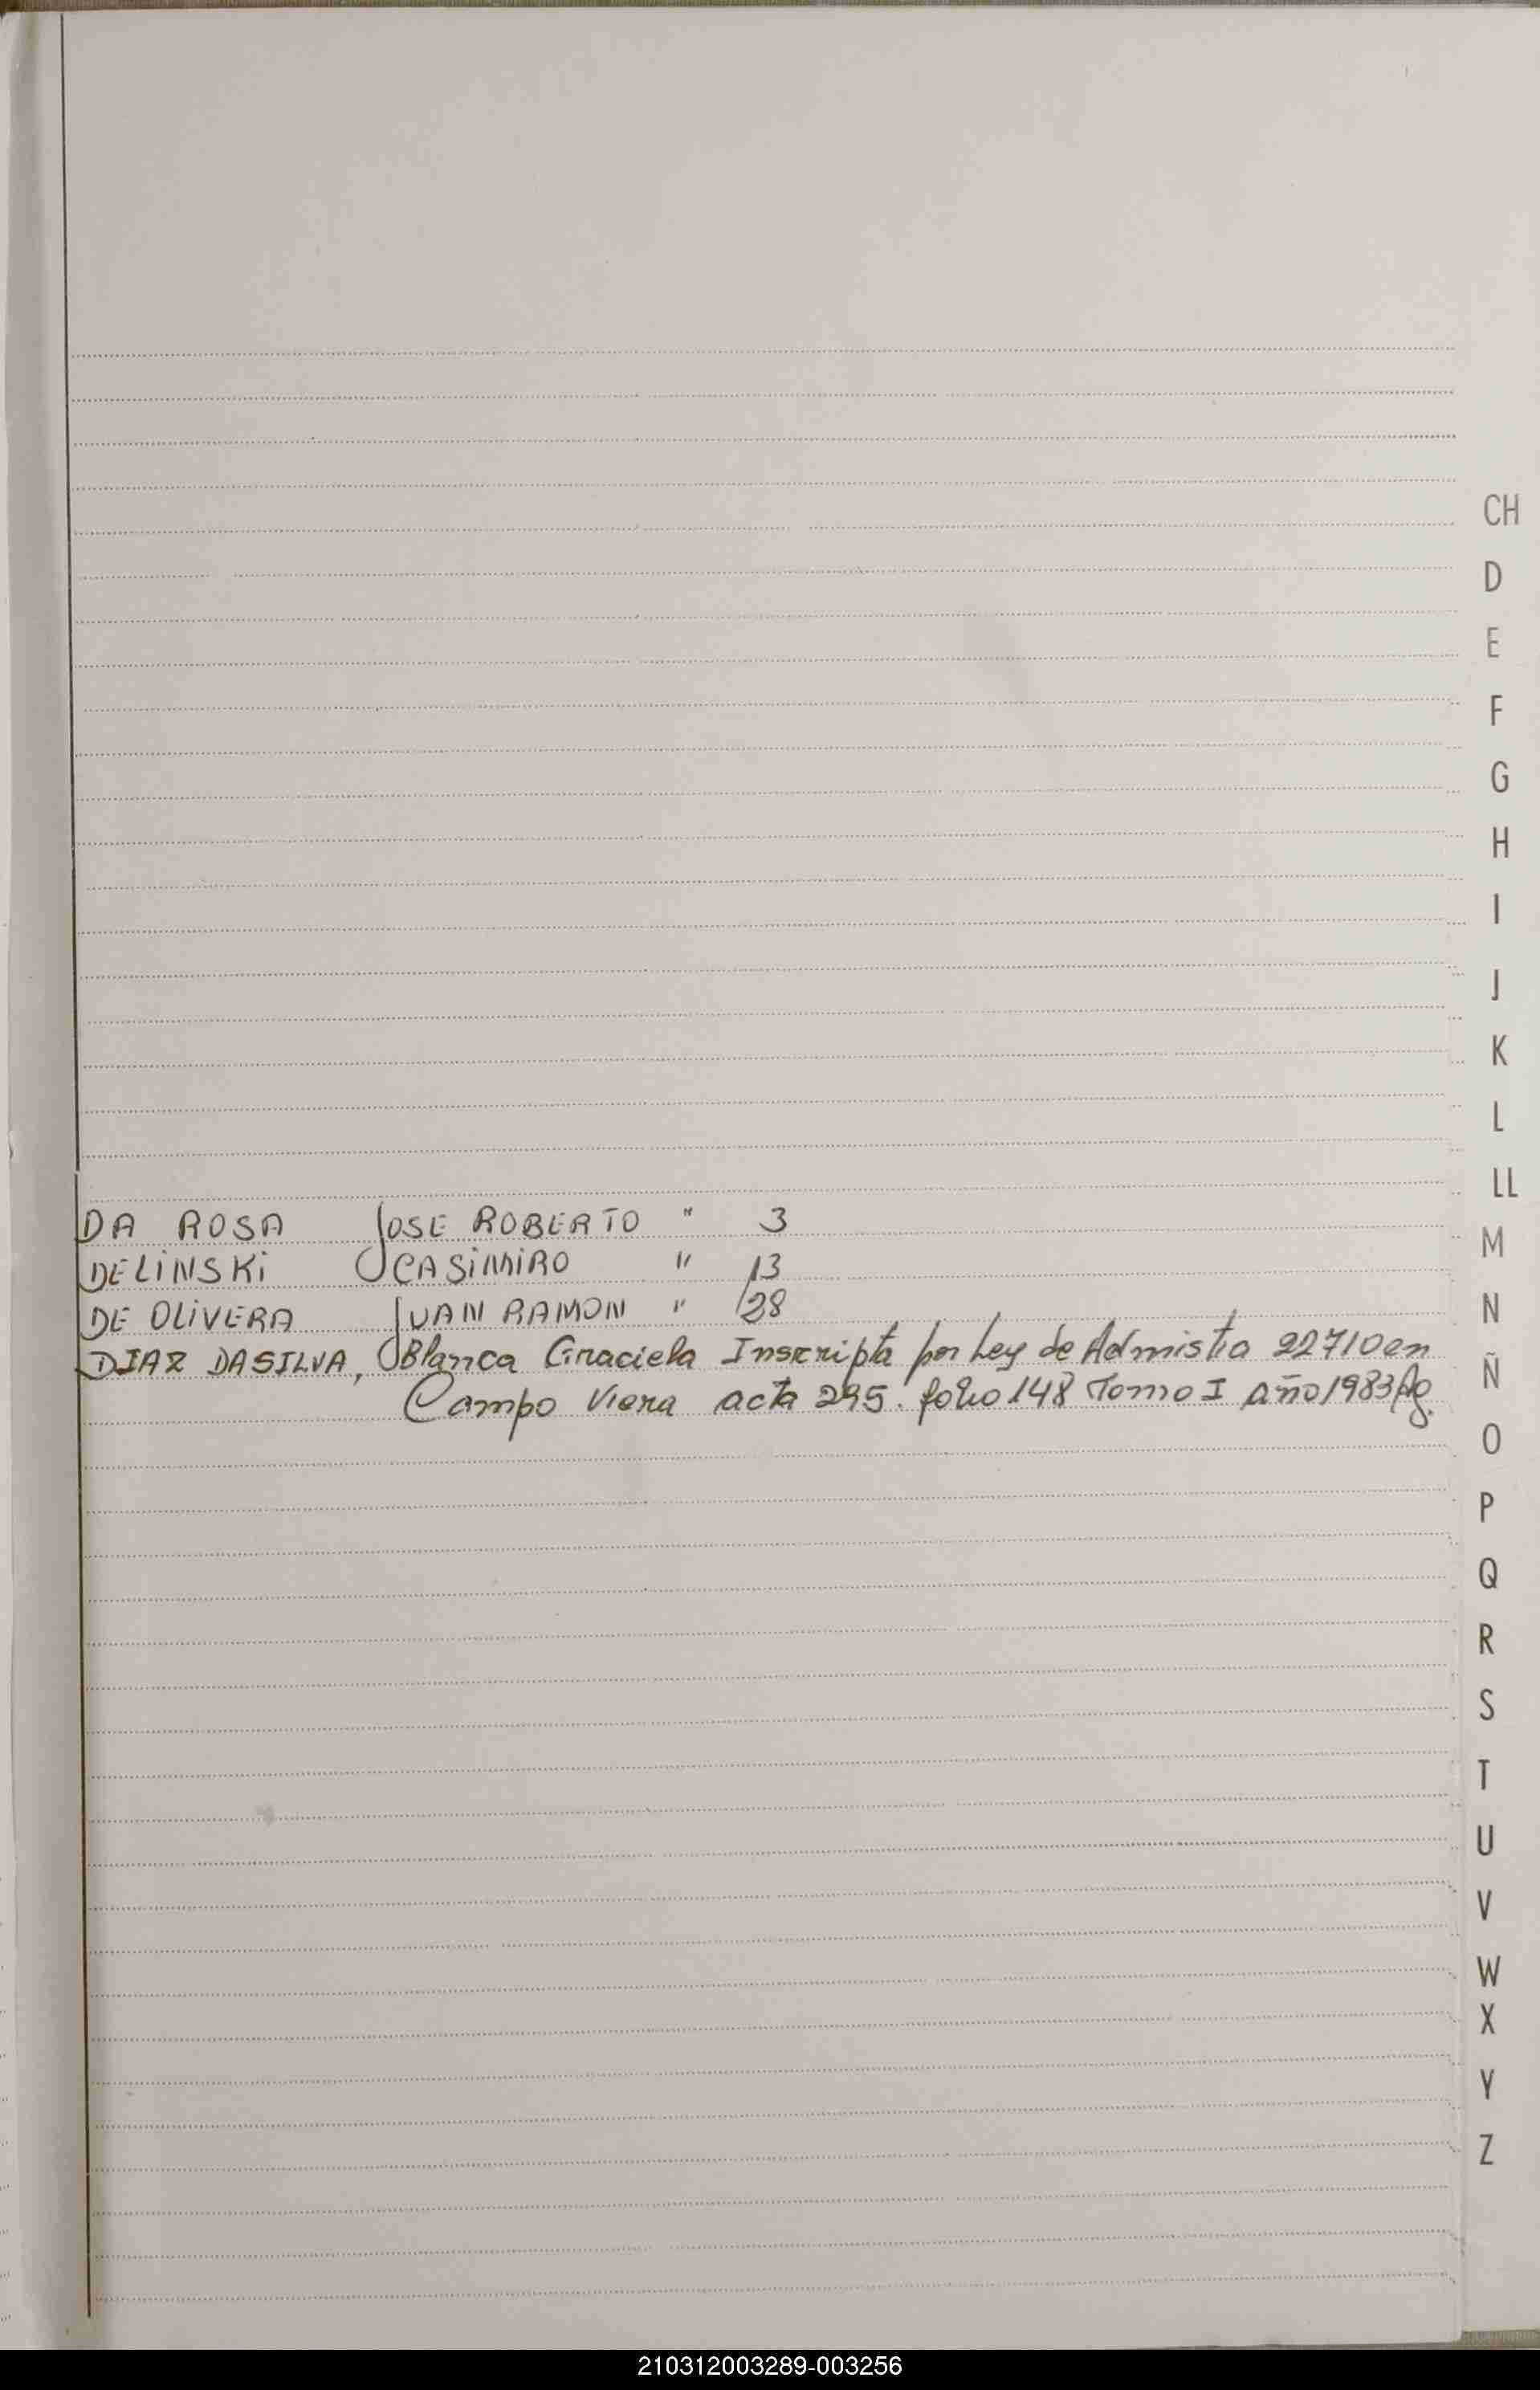 CH
D
E
F
G
H
I
J
K
L
LL
M
N
Ñ
O
P
Q
R
S
T
U
V
W
X
Y
Z
DA ROSA JOSE ROBERTO " 3
DELINSKI CASIMIRO " 13
DE OLIVERA JUAN RAMON " 28
DIAZ DASILVA, Blanca Graciela Inscripta por Ley de Admistia 22710 en
Campo Viera acta 295. folio 148 Tomo I Año 1983
210312003289-003256